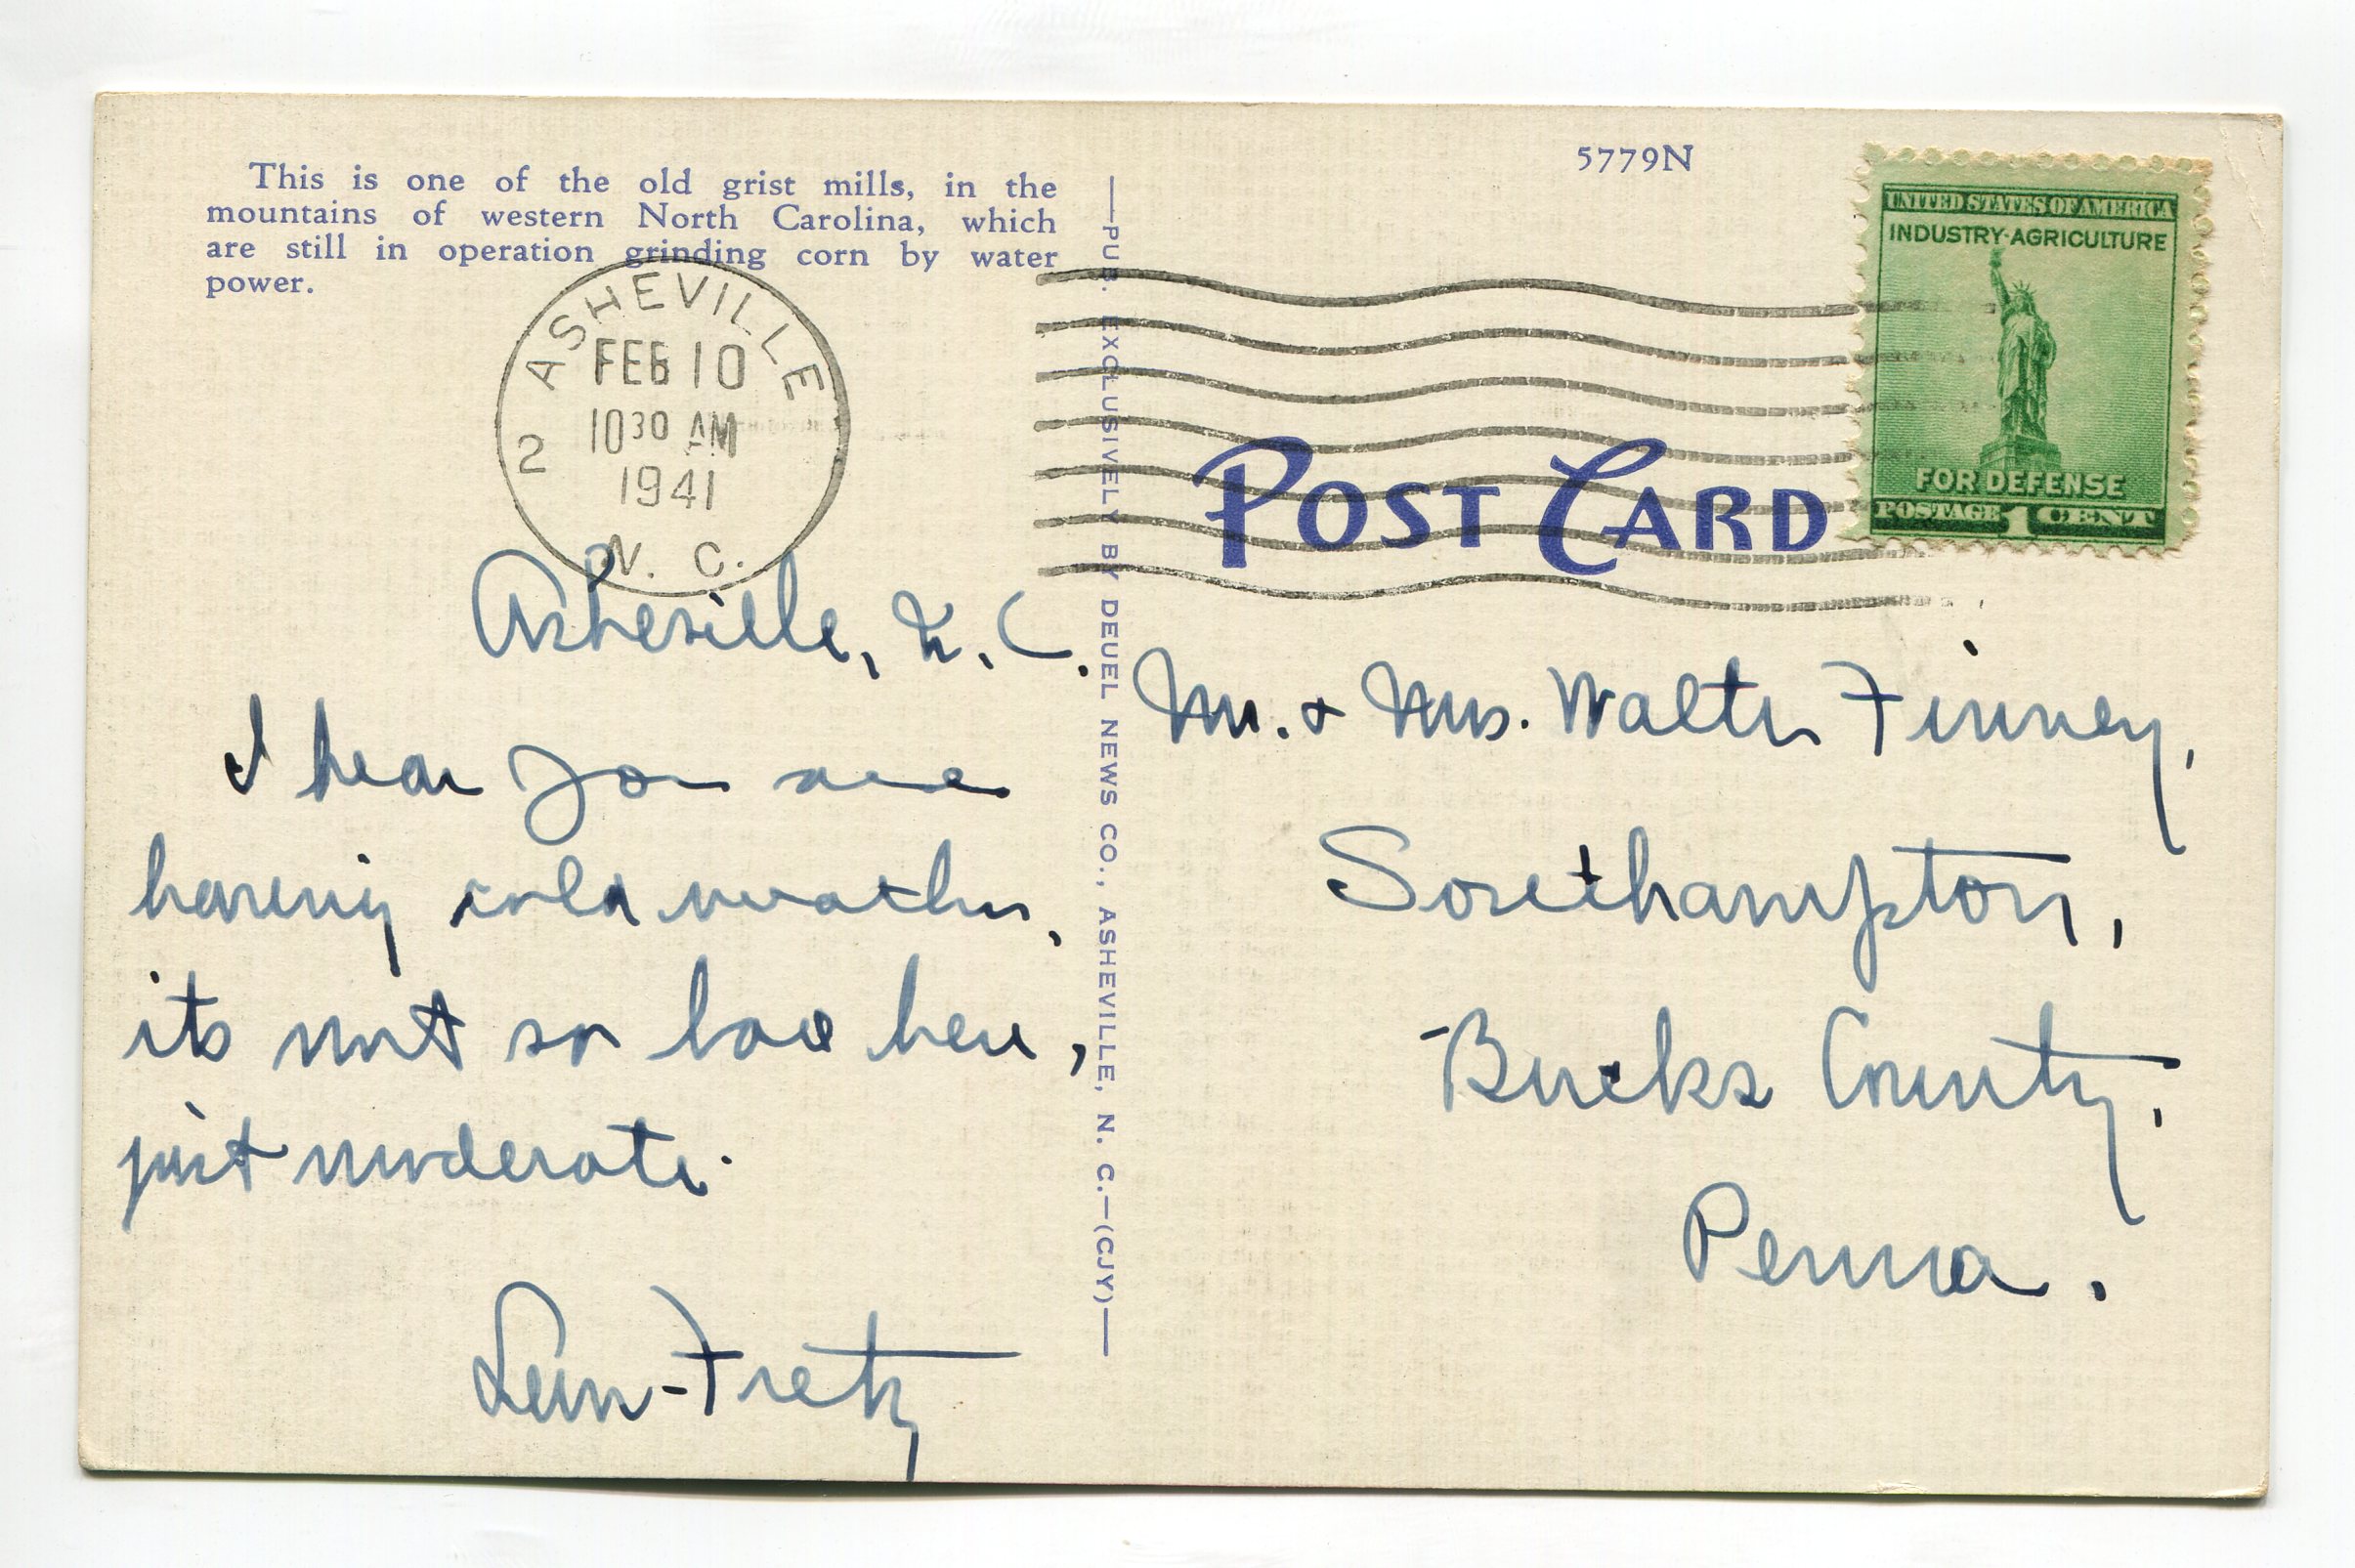 This is one of the old grist mills, in the
mountains of western North Carolina, which
are still in operation grinding corn by water
power.
5779N
UNITED STATES OF AMERICA
INDUSTRY·AGRICULTURE
FOR DEFENSE
POSTAGE 1 CENT
ASHEVILLE
FEB 10
10 30 AM
2
1941
N. C.
POST CARD
PUB. EXCLUSIVELY BY DEUEL NEWS CO., ASHEVILLE, N. C.—(CJY)
Asheville, N. C.
I hear you are
having cold weather,
its not so bad here,
just moderate.
Fretz
Mr. & Mrs. Walter Finney,
Southampton,
Bucks County,
Penna.